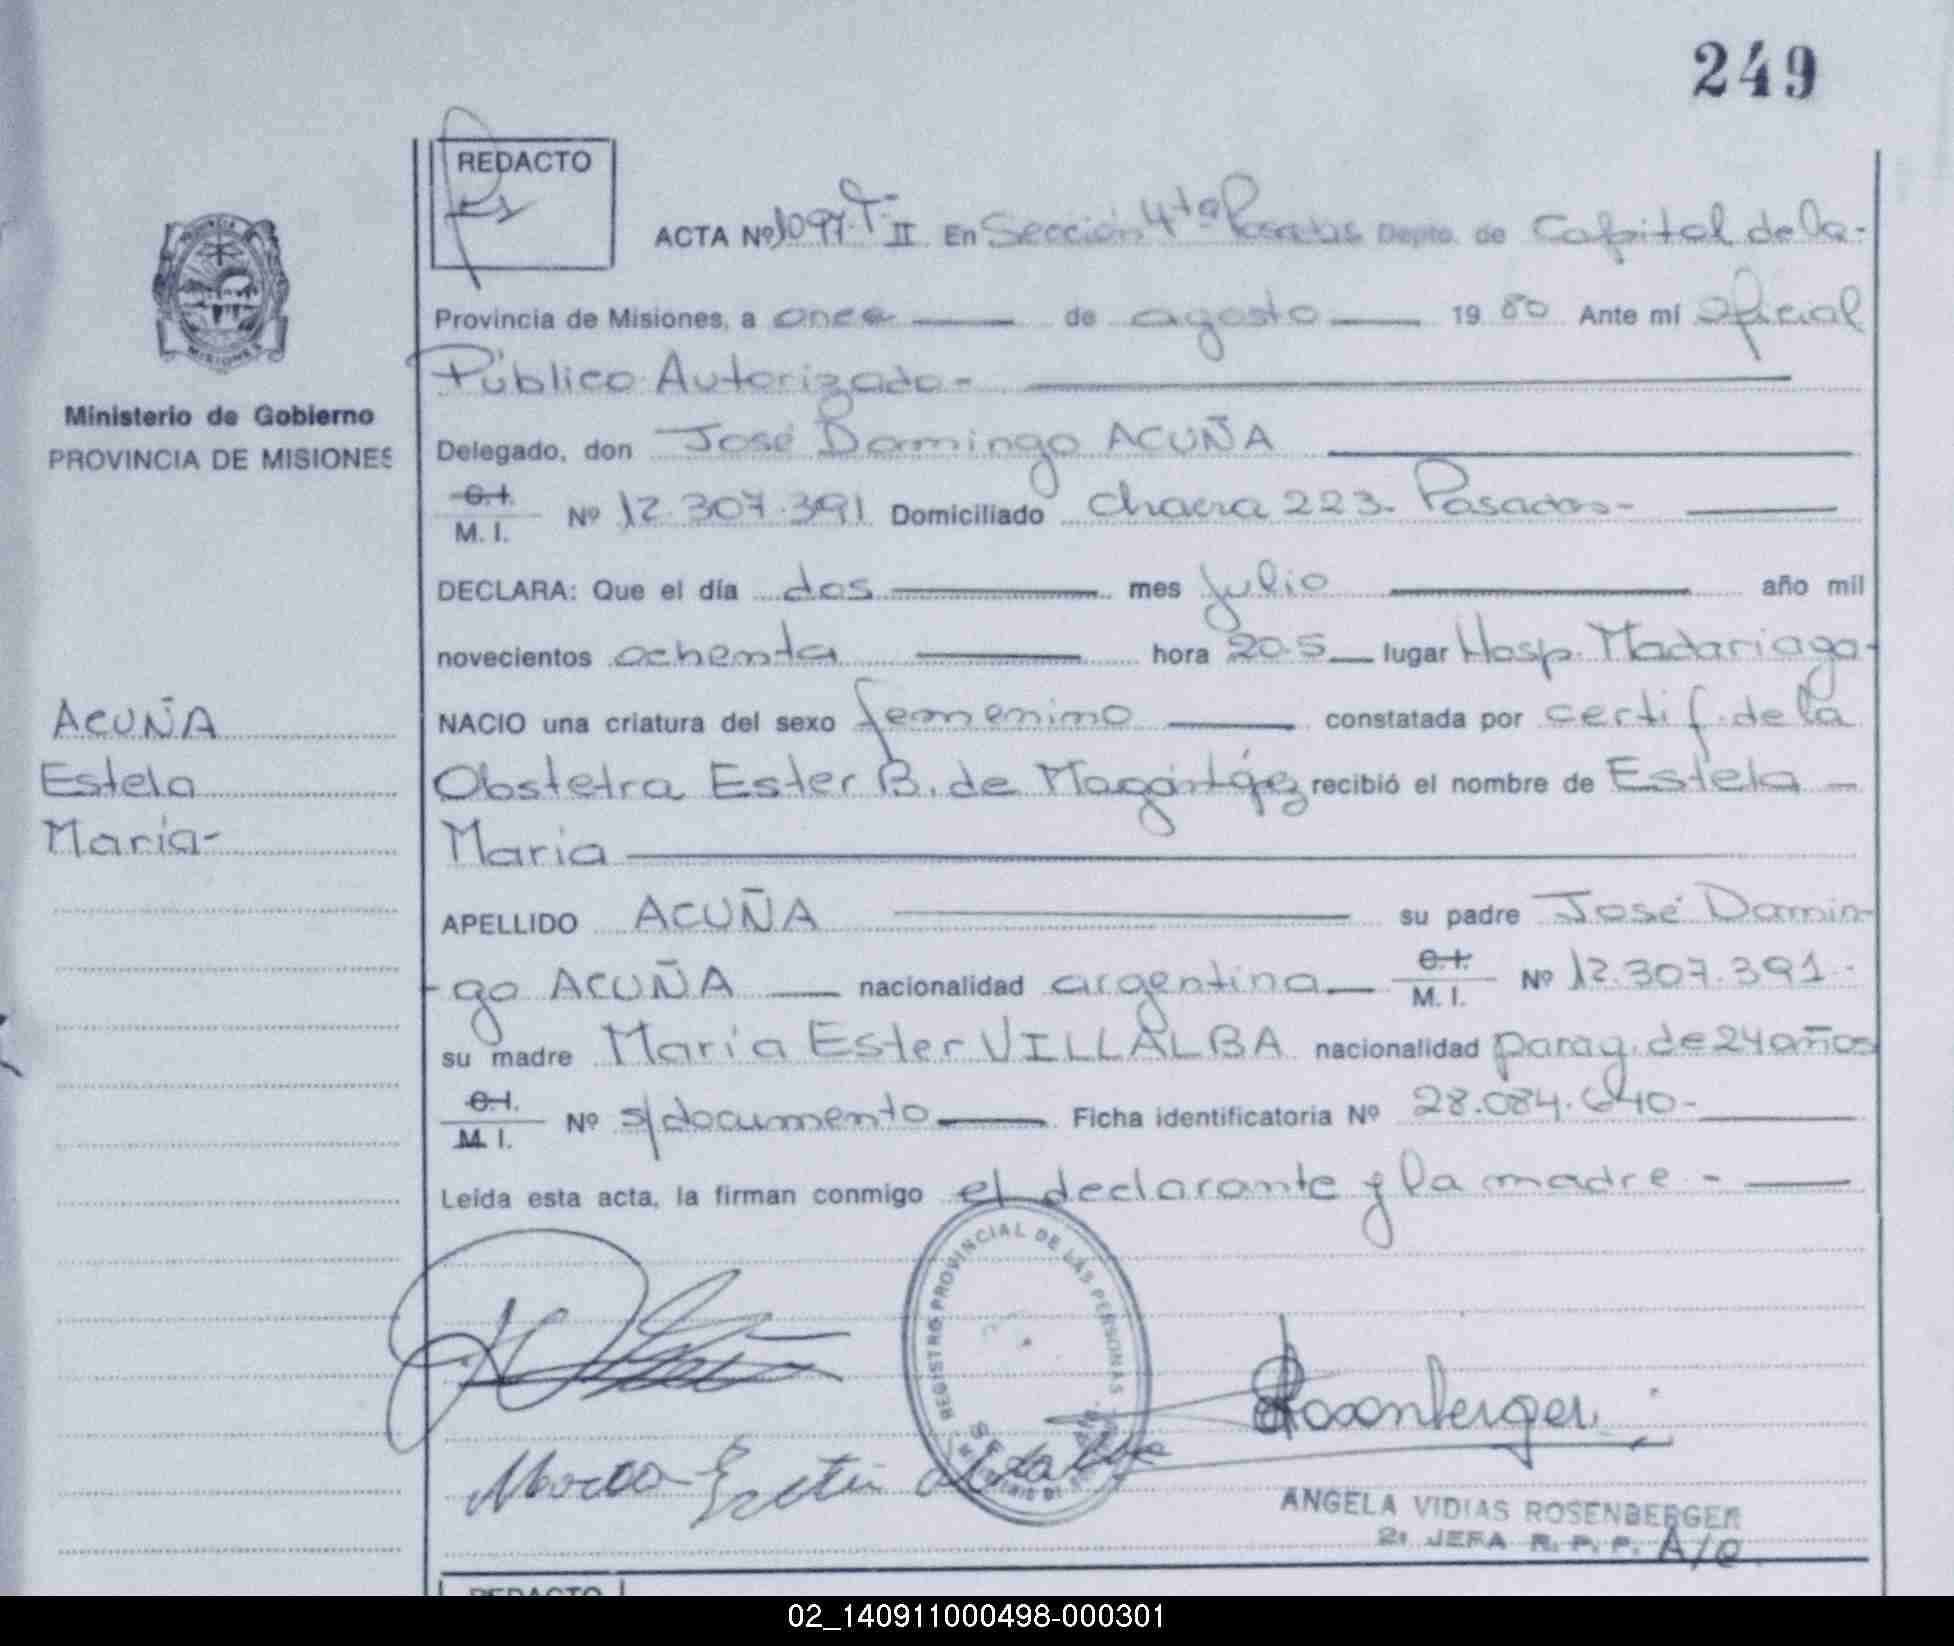 249
REDACTO
ACTA Nº 1097. T-II En Sección 4ta Posadas Depto. de Capital de la-
Provincia de Misiones, a once de agosto 1980 Ante mí Oficial
Público Autorizado-
Ministerio de Gobierno
PROVINCIA DE MISIONES
Delegado, don José Domingo ACUÑA
C.I.
M. I. Nº 12.307.391 Domiciliado chacra 223- Posadas-
DECLARA: Que el día dos mes julio año mil
novecientos ochenta hora 20.5 lugar Hosp. Madariaga-
ACUÑA
Estela
María-
NACIO una criatura del sexo femenino constatada por certif. de la
Obstetra Ester B. de recibió el nombre de Estela -
María
APELLIDO ACUÑA su padre José Domin-
-go ACUÑA nacionalidad argentina C.I.
M. I. Nº 12.307.391-
su madre María Ester VILLALBA nacionalidad parag. de 24 años
C.I.
M. I. Nº s/documento Ficha identificatoria Nº 28.084.640-
Leída esta acta, la firman conmigo el declarante y la madre -
REGISTRO PROVINCIAL DE LAS PERSONAS
Rosenberger
ANGELA VIDIAS ROSENBERGER
2ª JEFA R. P. P. A/C
REDACTO
02_140911000498-000301